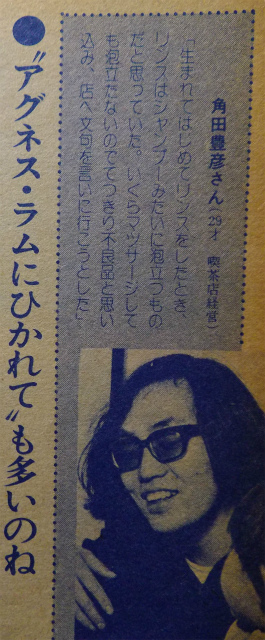 角田豊彦さん（29才　喫茶店経営）
「生まれてはじめてリンスをしたとき、
リンスはシャンプーみたいに泡立つもの
だと思っていた。いくらマッサージして
も泡立たないのでてっきり不良品と思い
込み、店へ文句を言いに行こうとした」
●〝アグネス・ラムにひかれて〟も多いのね